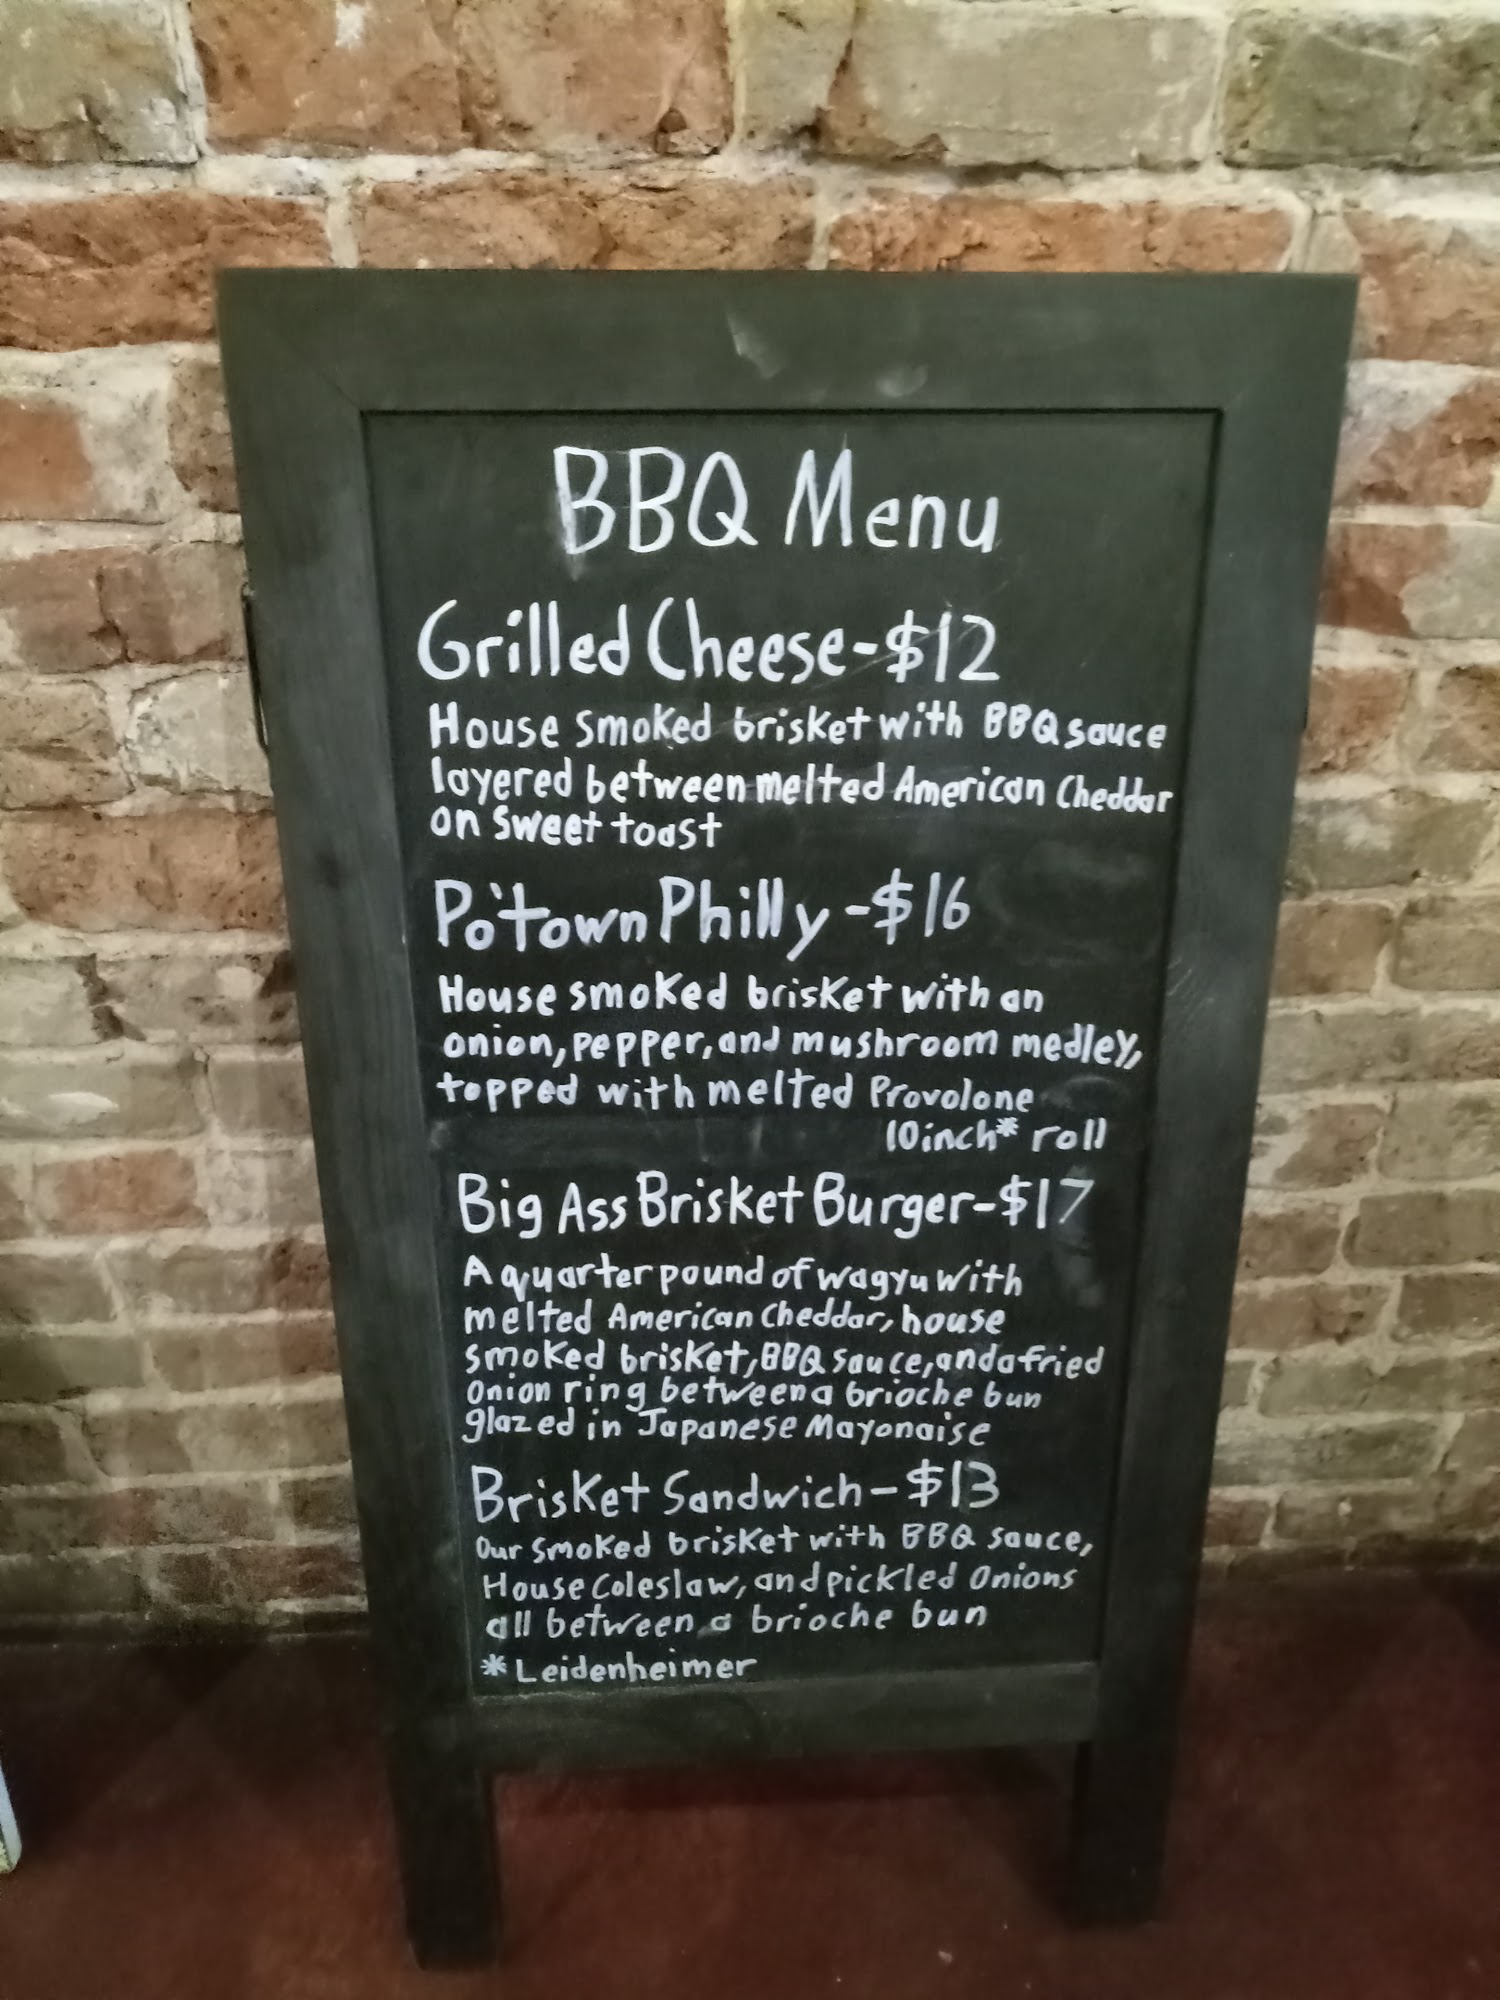 BBQ Menu
Grilled Cheese-$12
House smoked brisket with BBQ sauce
layered between melted American Cheddar
on sweet toast
Po'town Philly-$16
House smoked brisket with an
onion, pepper, and mushroom medley,
topped with melted Provolone
10 inch* roll
Big Ass Brisket Burger-$17
A quarter pound of wagyu with
melted American Cheddar, house
smoked brisket, BBQ sauce, and a fried
onion ring between a brioche bun
glazed in Japanese Mayonaise
Brisket Sandwich-$13
Our smoked brisket with BBQ sauce,
House Coleslaw, and pickled Onions
all between a brioche bun
*Leidenheimer